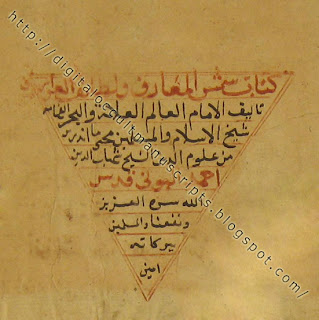 كتاب شمس المعارف ولطائف العوارف
تاليف الامام العالم العلامة والبحر الفهامة
شيخ الاسلام والمسلمين محيى ما اندرس
من علوم العارفين شهاب الدين
احمد البوني قدس
الله سره العزيز
ونفعنا والمسلمين
ببركاته
امين
http://digitaloccultmanuscripts.blogspot.com/